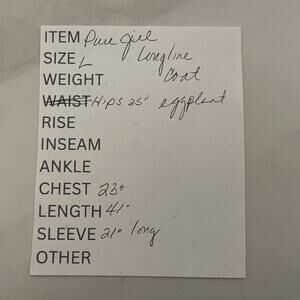 ITEM Pure Jill
SIZE L Longline
WEIGHT Coat
WAIST Hips 25" eggplant
RISE
INSEAM
ANKLE
CHEST 23"
LENGTH 41"
SLEEVE 21" long
OTHER